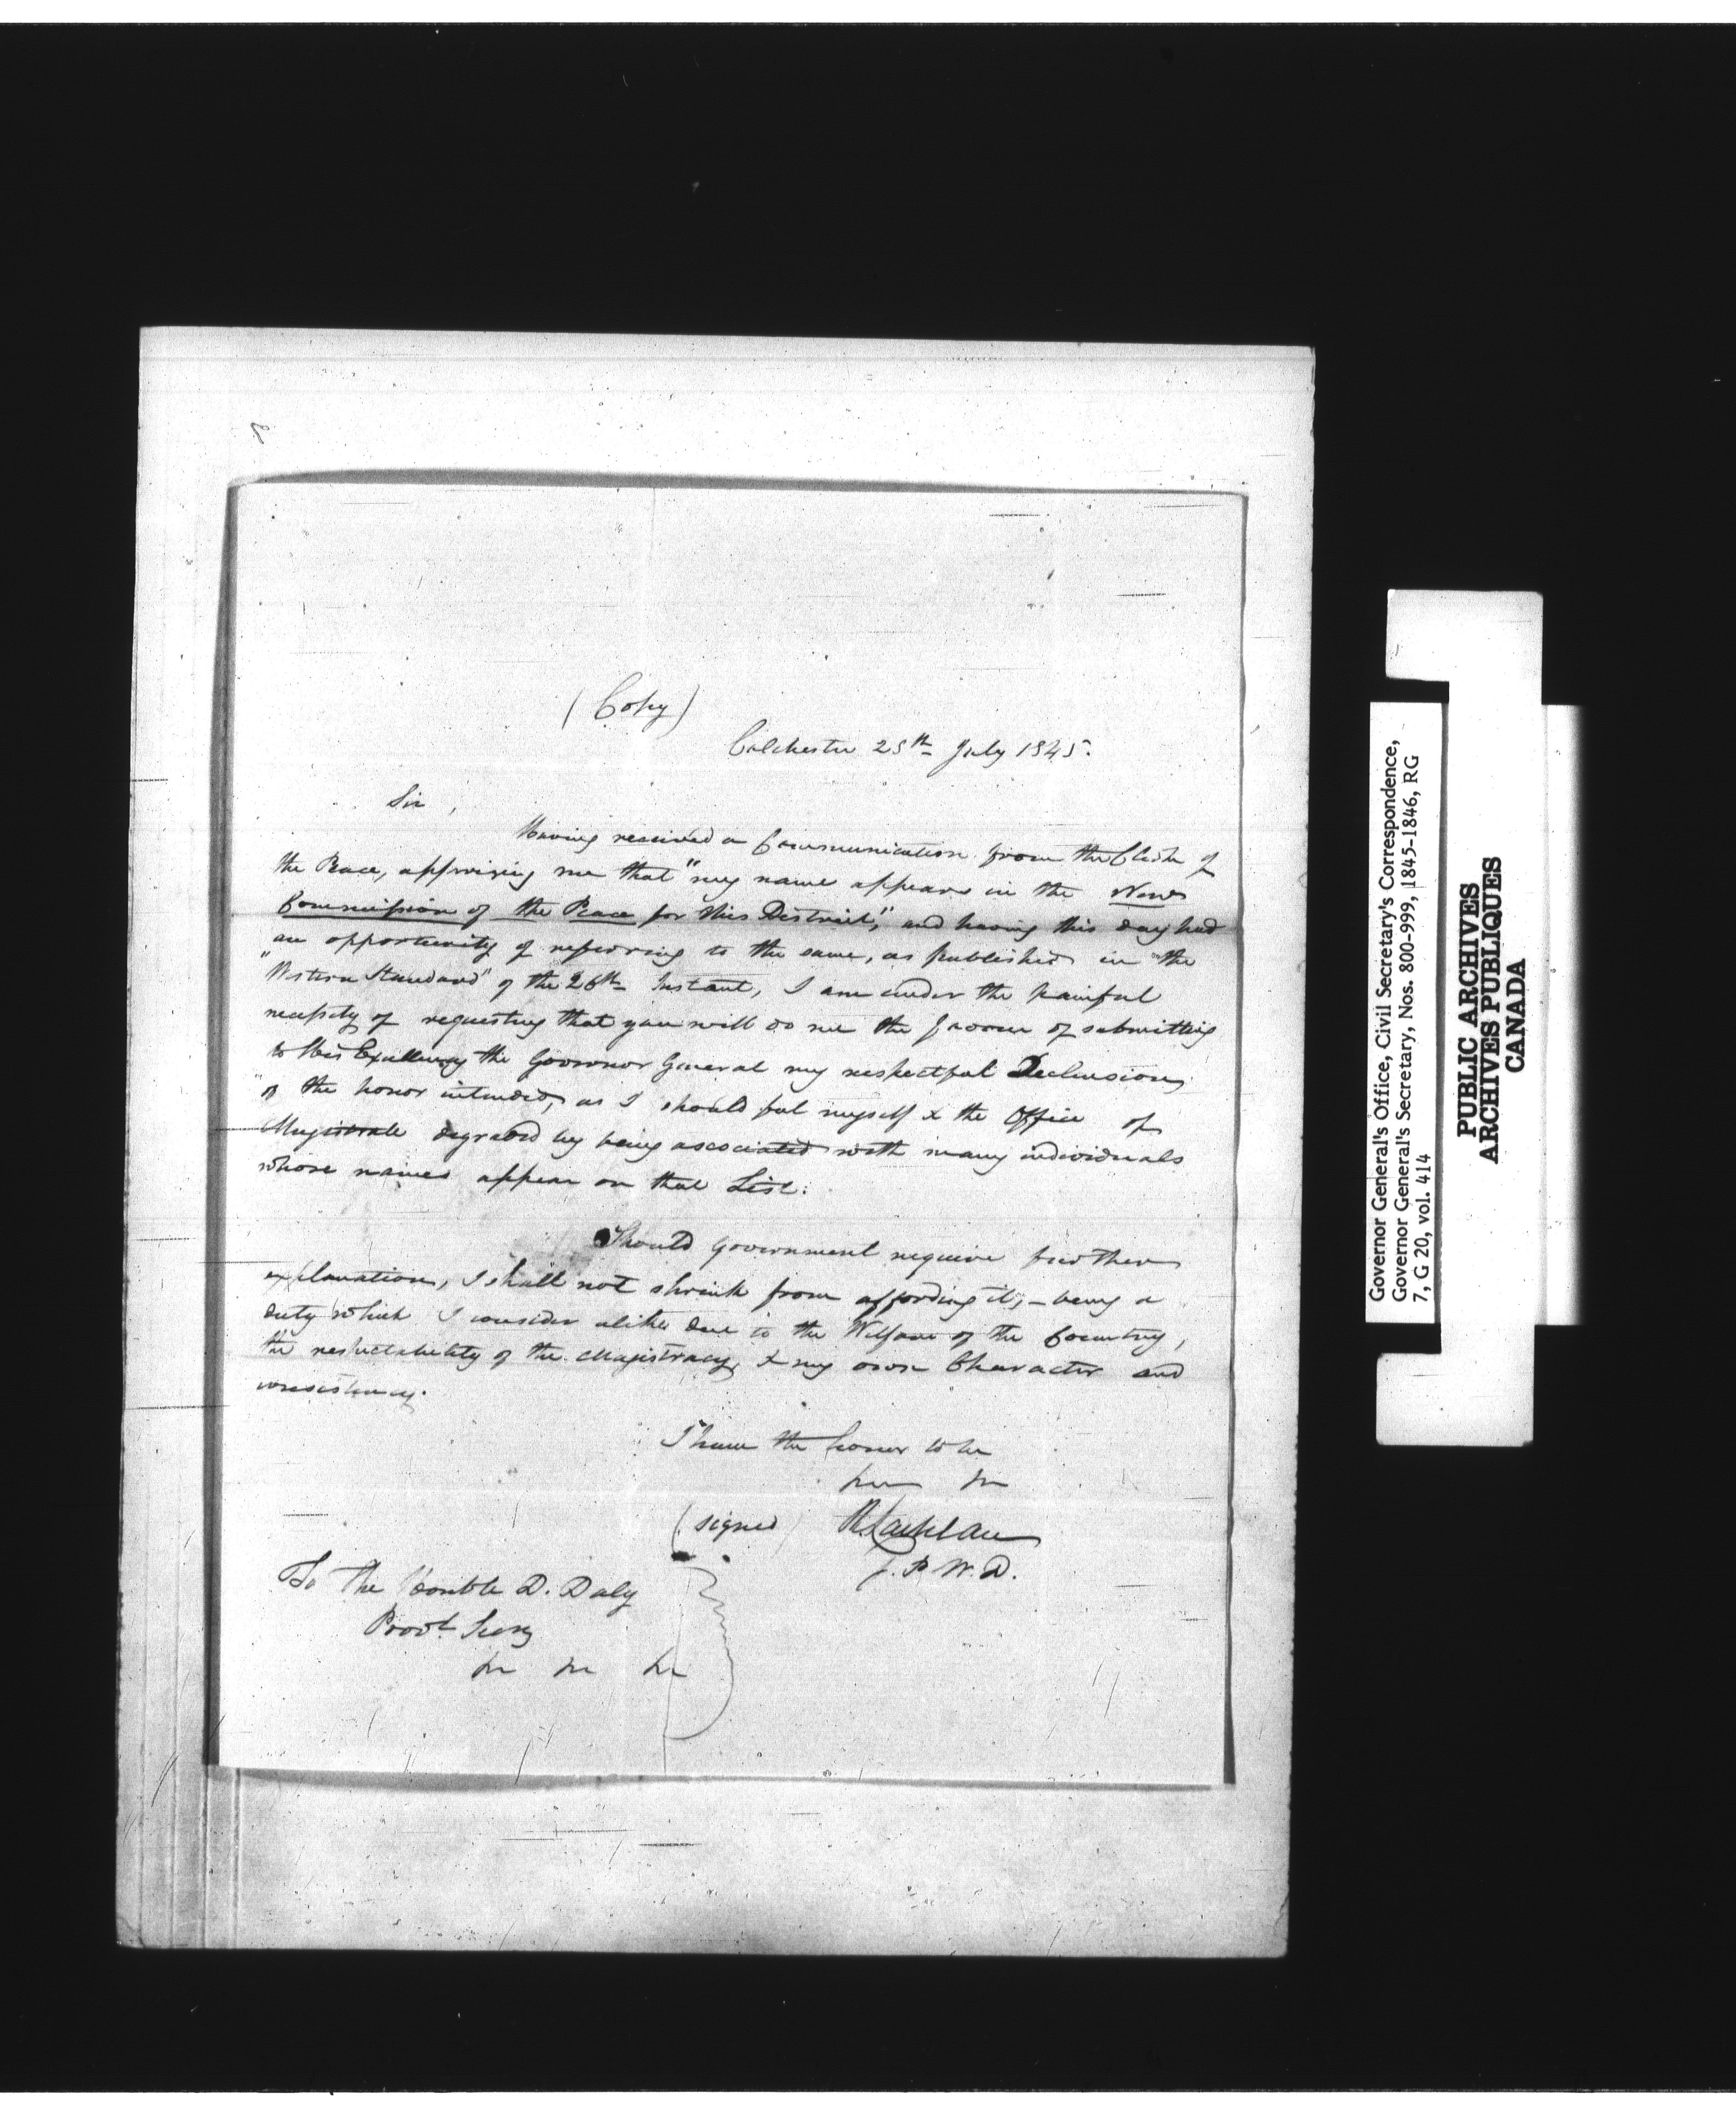 (Copy)
Colchester 28th July 1845.
Sir,
Having received a Communication from the Clerk of
the Peace, apprising me that "my name appears in the New
Commission of the Peace for this District," and having this day had
an opportunity of referring to the same, as published in the
"Western Standard" of the 26th Instant, I am under the painful
necessity of requesting that you will do me the favour of submitting
to His Excellency the Governor General my respectful Declension
of the honor intended, as I should feel myself & the Office of
Magistrate degraded by being associated with many individuals
whose names appear on that List.
Should Government require further
explanation, I shall not shrink from affording it, – being a
duty which I consider alike due to the Welfare of the Country,
the respectability of the Magistracy, & my own Character and
consistency.
I have the honor to be
(signed) R. Lachlan
J. P. W. D.
To The Honble D. Daly
Provl Secy
Governor General's Office, Civil Secretary's Correspondence,
Governor General's Secretary, Nos. 800-999, 1845-1846, RG
7, G 20, vol. 414
PUBLIC ARCHIVES
ARCHIVES PUBLIQUES
CANADA